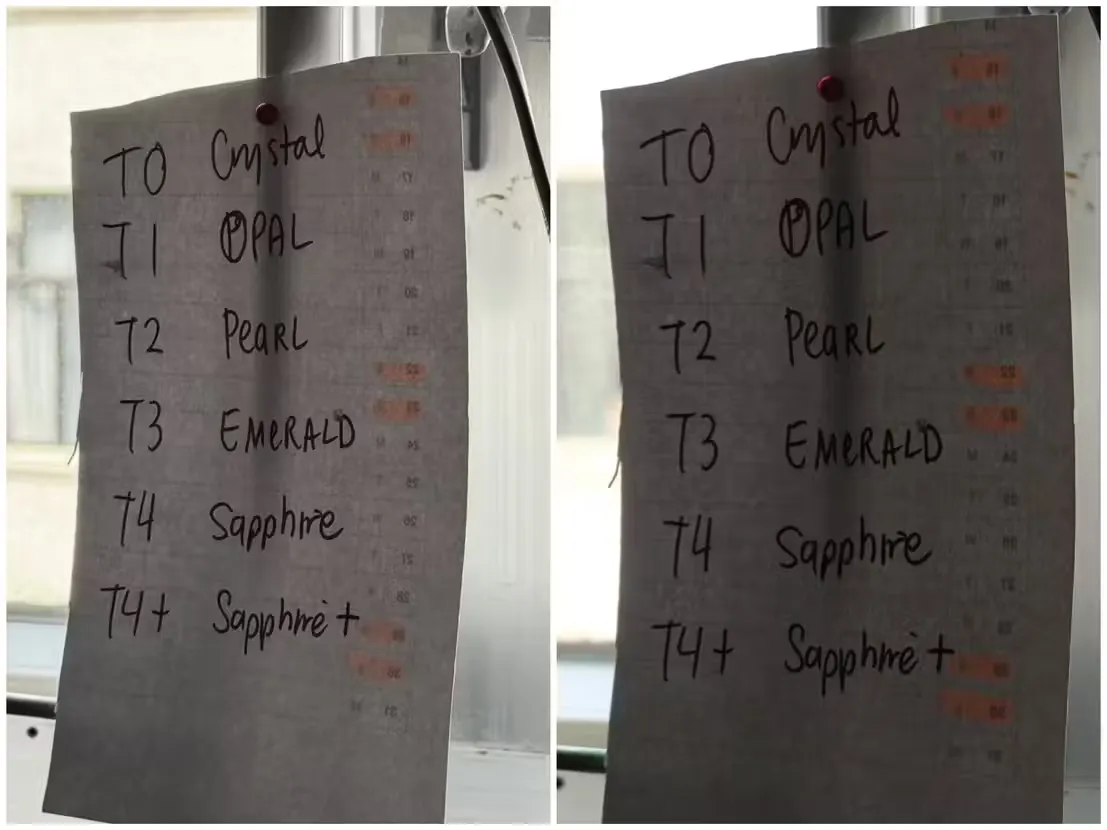 T0 Crystal
T1 OPAL
T2 PeaRL
T3 EMeRALD
T4 Sapphire
T4+ Sapphire+
T0 Crystal
T1 OPAL
T2 PeaRL
T3 EMeRALD
T4 Sapphire
T4+ Sapphire+